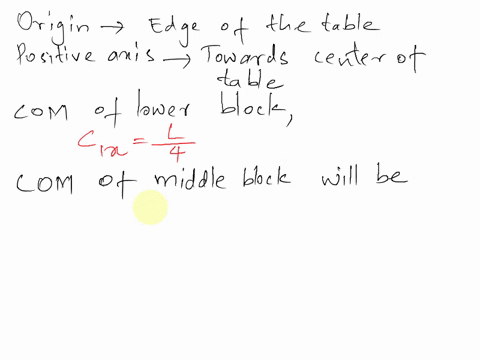 Origin → Edge of the table
Positive axis → Towards center of
table
COM of lower block,
C₁ₓ = L/4
COM of middle block will be